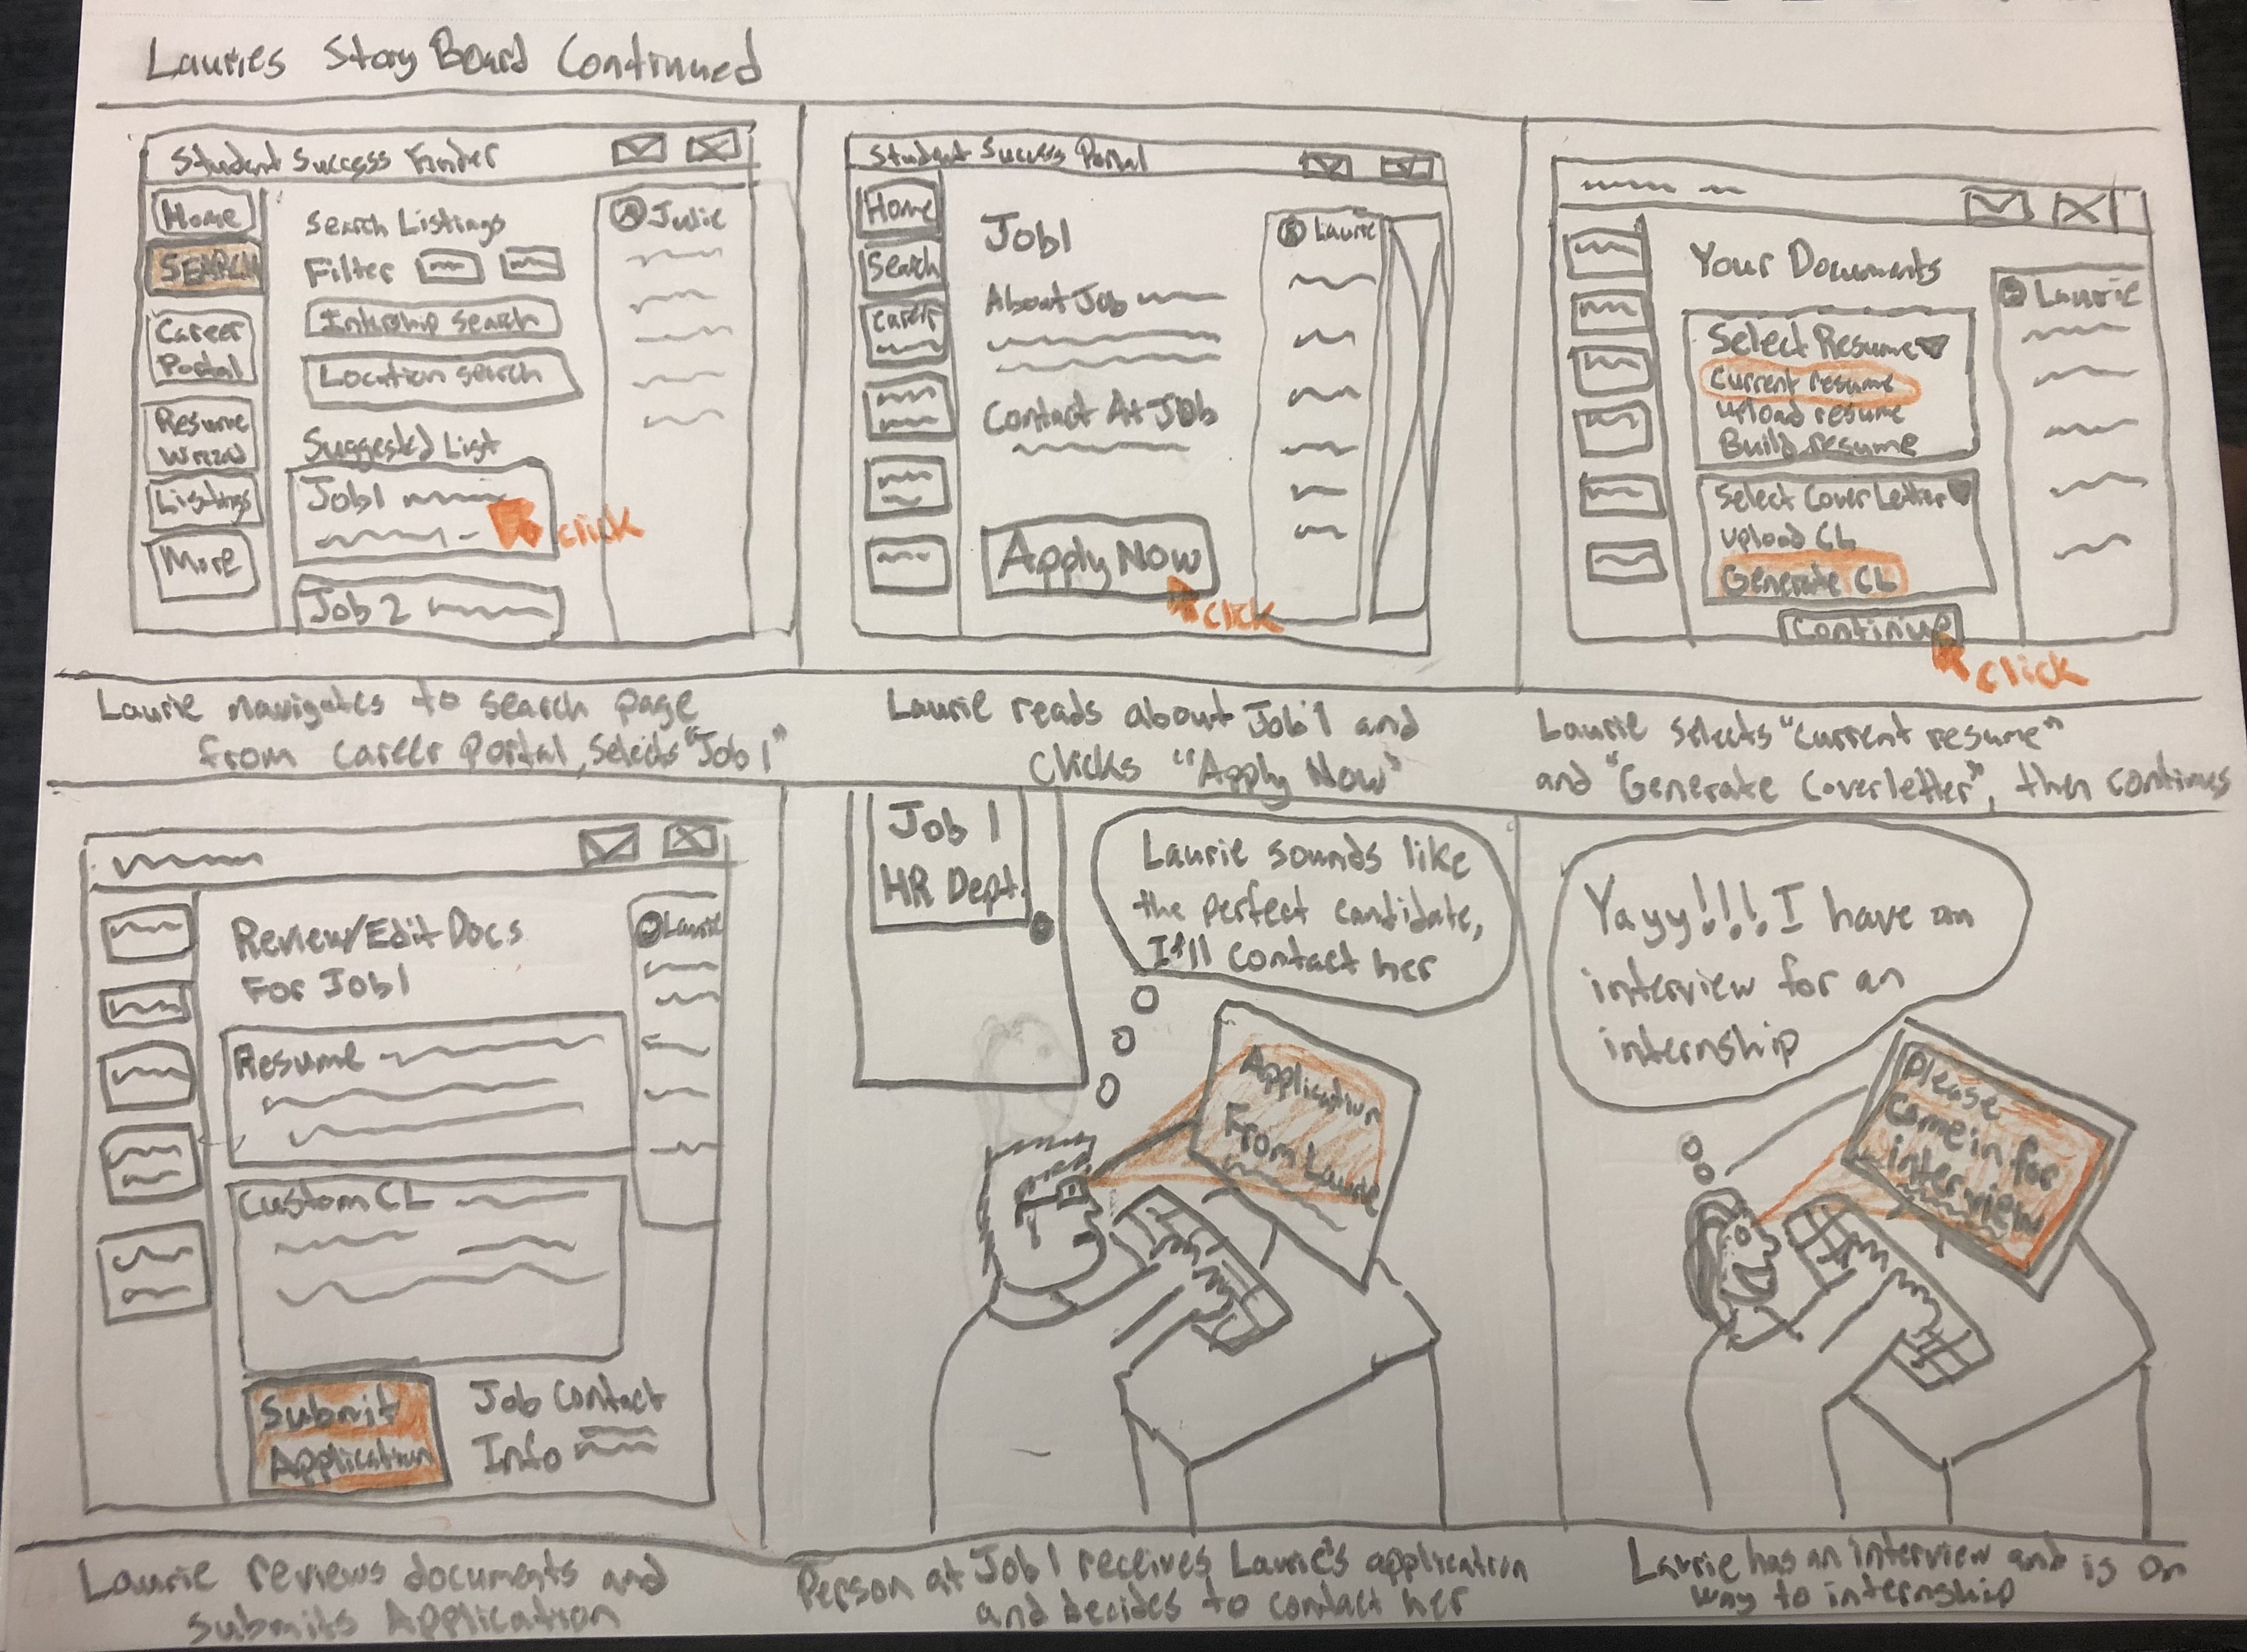 Lauries Story Board Continued
Student Success Finder
Home
SEARCH
Career
Portal
Resume
Wizard
Listings
More
Search Listings
Filter
Intership search
Location search
Suggested List
Job 1
click
Job 2
Julie
Laurie navigates to search page
from career Portal, selects "Job 1"
Student Success Portal
Home
Search
Career
Job 1
About Job
Contact At Job
Apply Now
click
Laurie
Laurie reads about Job 1 and
clicks "Apply Now"
Your Documents
Select Resume
Current resume
upload resume
Build resume
Select Cover Letter
Upload CL
Generate CL
Continue
click
Laurie
Laurie selects "Current resume"
and "Generate Coverletter", then continues
Review/Edit Docs
For Job 1
Resume
Custom CL
Submit
Application
Job Contact
Info
Laurie
Laurie reviews documents and
submits Application
Job 1
HR Dept.
Laurie sounds like
the perfect candidate,
I'll contact her
Application
From Laurie
Person at Job 1 receives Laurie's application
and decides to contact her
Yayy!!! I have an
interview for an
internship
Please
come in for
interview
Laurie has an interview and is on
way to internship